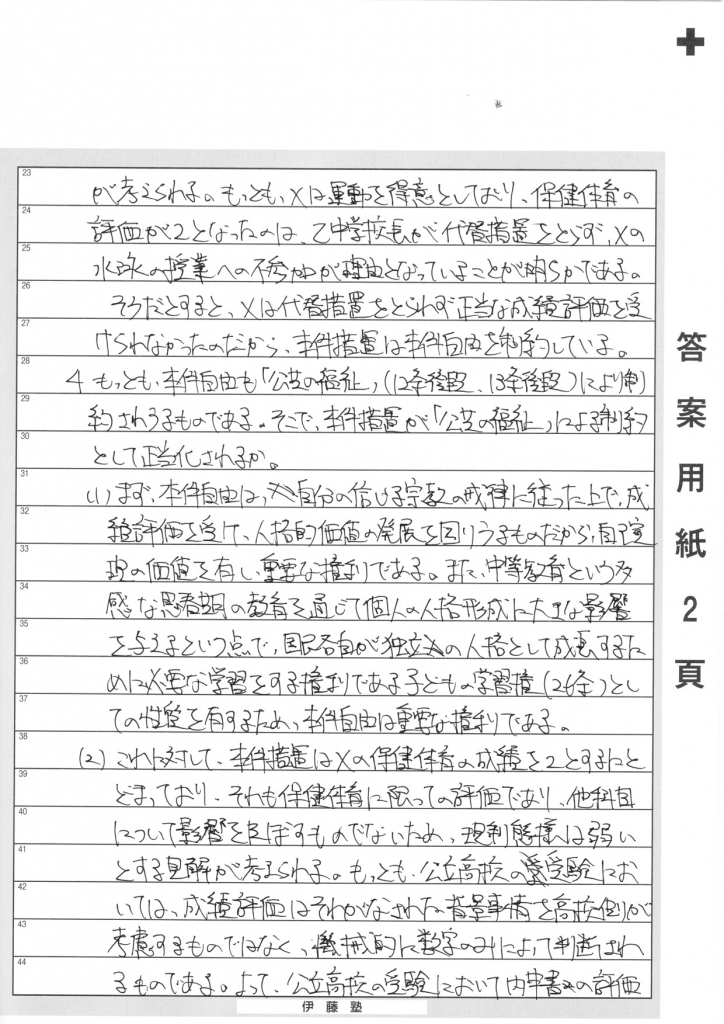 23
が考えられる。もっとも、Xは運動を得意としており、保健体育の
24
評価が2となったのは、乙中学校長が代替措置をとらず、Xの
25
水泳の授業への不参加が理由となっていることが明らかである。
26
そうだとすると、Xは代替措置をとられず正当な成績評価を受
27
けられなかったのだから、本件措置は本件自由を制約している。
28
4 もっとも、本件自由も「公共の福祉」(12条後段、13条後段)により制
29
約されうるものである。そこで、本件措置が「公共の福祉」による制約
30
として正当化されるか。
31
(1) まず、本件自由は、自分の信ずる宗教の戒律に従った上で、成
32
績評価を受け、人格的価値の発展を図りうるものだから、自己実
33
現の価値を有し、重要な権利である。また、中等教育という多
34
感な思春期の教育を通じて個人の人格形成に大きな影響
35
を与えるという点で、国民各自が独立の人格として成長するた
36
めに必要な学習をする権利である子どもの学習権(26条)とし
37
ての性質を有するため、本件自由は重要な権利である。
38
(2) これに対して、本件措置はXの保健体育の成績を2とするにと
39
どまっており、それも保健体育に限っての評価であり、他科目
40
について影響を及ぼすものでないため、規制態様は弱い
41
とする見解が考えられる。もっとも、公立高校の受験にお
42
いては、成績評価はそれがなされた背景事情を高校側が
43
考慮するものではなく、機械的に数字のみによって判断され
44
るものである。よって、公立高校の受験において内申書の評価
伊藤塾
答案用紙2頁